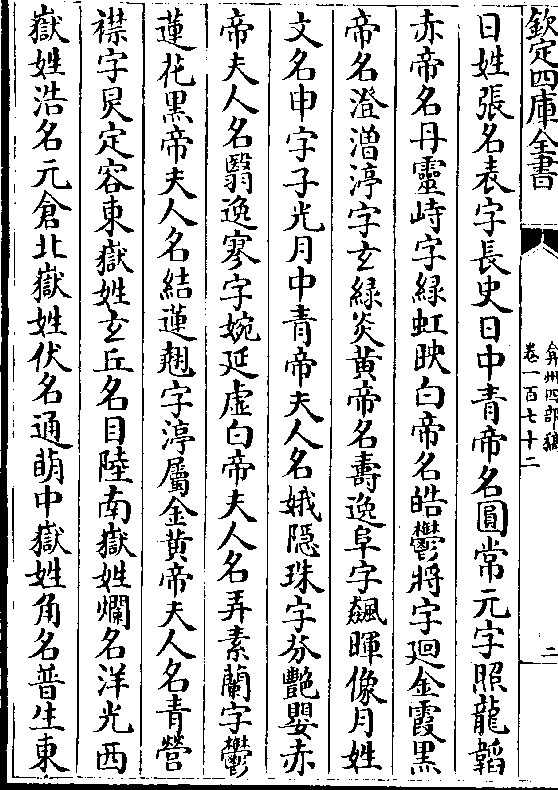 欽定四庫全書
弇州四部稿
卷一百七十二
二
日姓張名表字長史日中青帝名圓常元字照龍韜
赤帝名丹靈峙字緑虹映白帝名皓鬱將字廻金霞黒
帝名澄潧渟字玄緑炎黄帝名夀逸阜字飆暉像月姓
文名申字子光月中青帝夫人名娥隠珠字芬艷嬰赤
帝夫人名翳逸寥字婉延虚白帝夫人名弄素蘭字鬱
蓮花黒帝夫人名結蓮翹字渟屬金黄帝夫人名青營
襟字炅定容東嶽姓玄丘名目陸南嶽姓爛名洋光西
嶽姓浩名元倉北嶽姓伏名通萌中嶽姓角名普生東